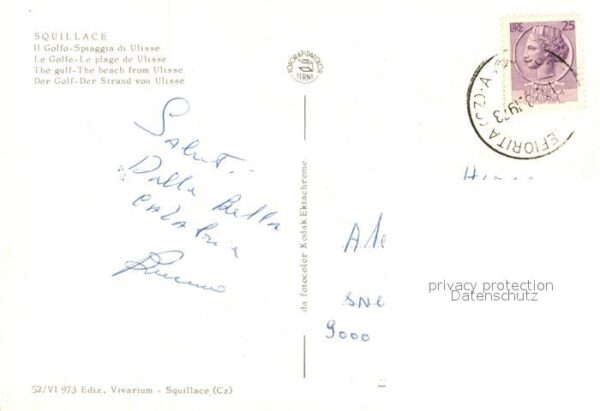 SQUILLACE
Il Golfo-Spiaggia di Ulisse
Le Golfe-Le plage de Ulisse
The gulf-The beach from Ulisse
Der Golf-Der Strand von Ulisse
TERNI
LIRE 25
EFIORITA (CZ) A
1973
Saluti
Dalla Bella
CALABria
da fotocolor Kodak Ektachrome
Ale
SNE
9000
privacy protection
Datenschutz
52/VI 973 Ediz. Vivarium - Squillace (Cz)